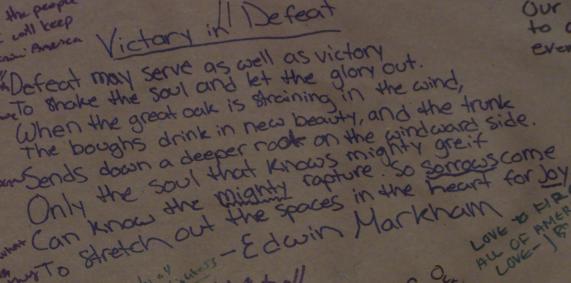 the people
will keep
America
Victory in Defeat
"Defeat may serve as well as victory
To shake the soul and let the glory out.
When the great oak is straining in the wind,
The boughs drink in new beauty, and the trunk
Sends down a deeper root on the windward side.
Only the soul that knows mighty greif
Can know the mighty rapture. So sorrows come
To stretch out the spaces in the heart for joy
-Edwin Markham
Our
to
ever
LOVE to
ALL OF AMER
LOVE-